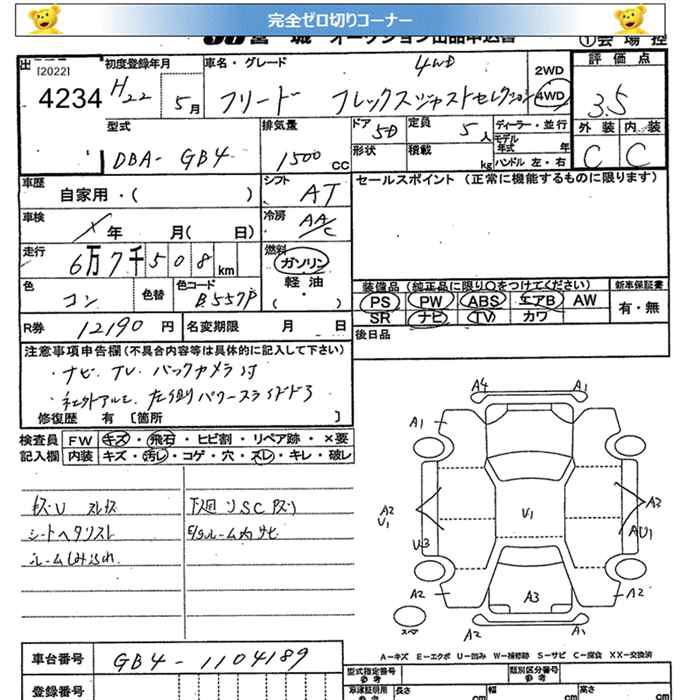 完全ゼロ切りコーナー
宮 城 オークション出品申込書 ①会 場 控
出 [2022] 4234
初度登録年月 H22 5月
車名・グレード フリード フレックスジャストセレクション 4WD
2WD
4WD
評価点 3.5
外装 C 内装 C
型式 DBA-GB4
排気量 1500 CC
ドア 5D
定員 5人
形状
積載 kg
ディーラー・並行
モデル年式 年
ハンドル 左・右
車歴 自家用・( )
シフト AT
セールスポイント (正常に機能するものに限ります)
車検 年 月( 日)
冷房 AA/C
走行 6万7千508km
燃料 ガソリン 軽油 ( ・ )
色 コン
色替
色コード B557P
装備品 (純正品に限り○をつけてください)
新車保証書
PS PW ABS エアB AW
SR ナビ TV カワ
有・無
R券 12190円
名変期限 月 日
後日品
注意事項申告欄(不具合内容等は具体的に記入して下さい)
・ナビ TV バックカメラ付
修復歴 有 [箇所 ]
検査員記入欄
FW キズ・飛石・ヒビ割・リペア跡・×要
内装 キズ・汚レ・コゲ・穴・スレ・キレ・破レ
シートヘタリスト
A4 A1
A1
A2
U1
U3
U1
A2
AU1
A2
A3
A2
A2 A1
スペア
A-キズ E-エクボ U-凹み W-補修跡 S-サビ C-腐食 XX-交換済
車台番号 GB4-1104189
登録番号
型式指定番号 参考
類別区分番号 参考
車庫証明用 参考
長さ cm
幅 cm
高さ cm